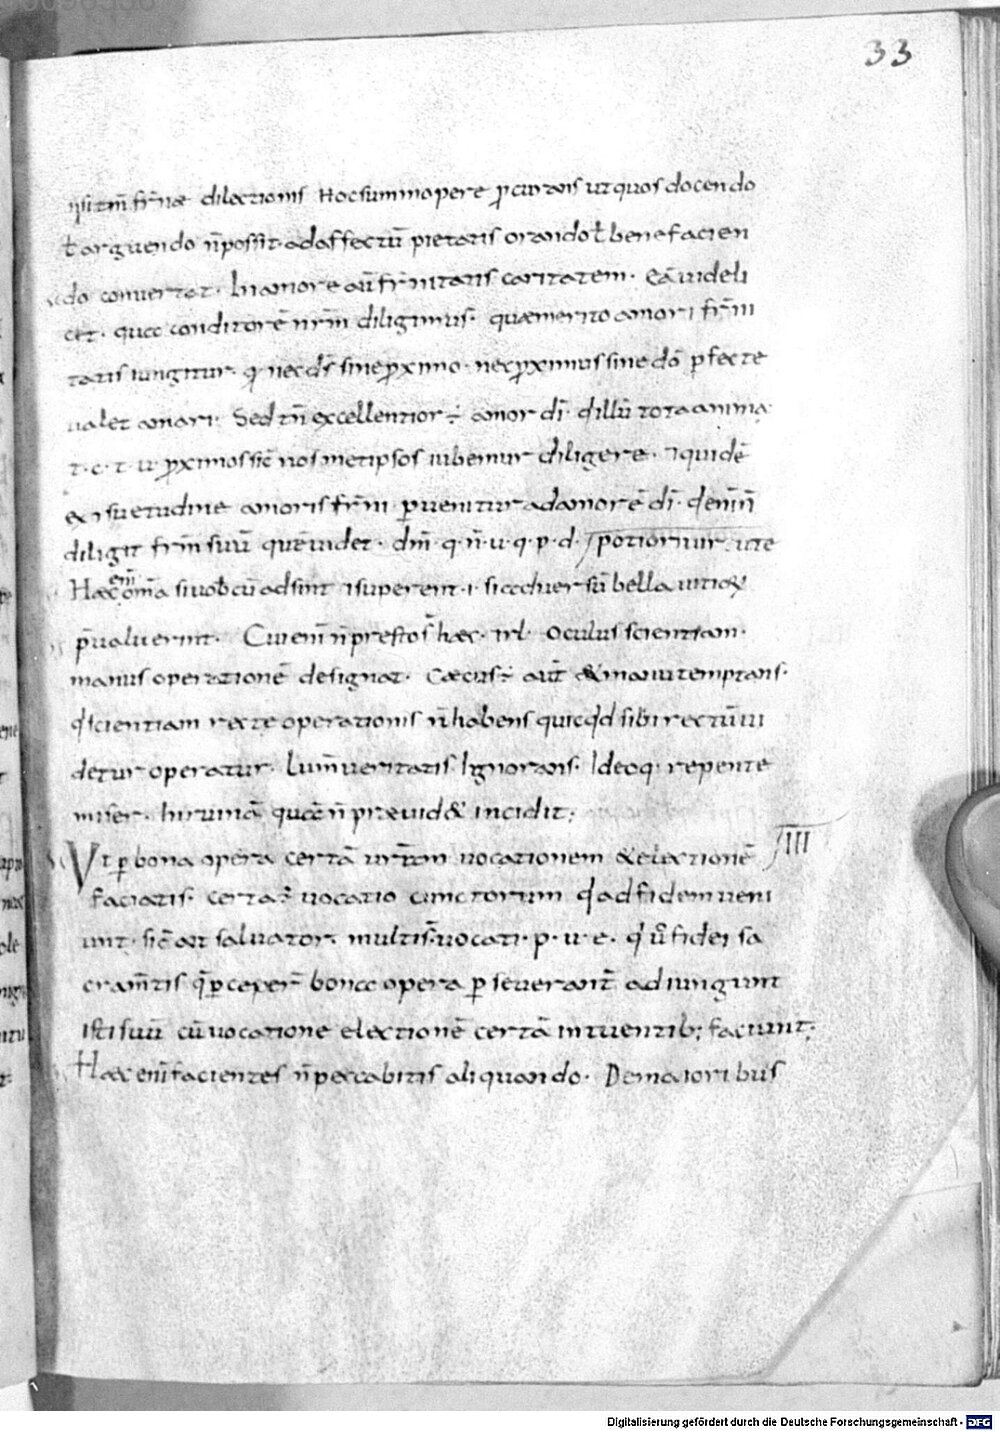 33
ipsi tm̄ fr̄nae dilectionis Hoc summopere ꝓcuratis ut quos docendo
ł arguendo n̄ possit ad affectū pietatis orando ł benefacien
do convertat. In amore aū fr̄nitatis caritatem. Eā videli
cet. quae conditorē nr̄m diligimus. quae merito amori fr̄ni
tatis iungitur. q' nec ds̄ sine ꝓximo. nec ꝓximus sine dō perfecte
valet amari. Sed tn̄ excellentior ÷ amor dī. q' illū tota anima
t. c. t. v ꝓximos sic̄ nosmetipsos iubemur diligere. ⁊ quidē
ex suetudine amoris fr̄ni pervenitur ad amorē dī. q' enī n̄
diligit fr̄m suū quē videt. dm̄ q. n̄. v. q. p. d. potioritur. ute
Haec enī om̄a si vob cū adsint ⁊ superent. i. si adversū bella vitioꝝ
p̄valuerint. Cui enī n̄ presto s̄ haec. rl. Oculus scientiam.
manus operationē designat. Caecus ÷ aūt & manu temptans.
q' scientiam recte operationis n̄ habens quicqd sibi rectū vi
detur operatur. Lum̄ veritatis Ignorans. Ideoq. repente
miser. In ruinā quā n̄ praevid& incidit;
III
Ut ꝑ bona opera certā vr̄am vocationem & electionē
faciatis. certa ÷ vocatio cunctorum q' ad fidem veni
unt. sic̄ ait salvator. multi s̄ vocati. p. v. e. q' ū fidei sa
cram̄tis q̄ ꝑceper̄ bona opera perseverant̄ adiungunt
isti suū cū vocatione electionē certā intuentib; faciunt;
Haec enī facientes n̄ peccabitis aliquando. De maioribus
Digitalisierung gefördert durch die Deutsche Forschungsgemeinschaft - DFG